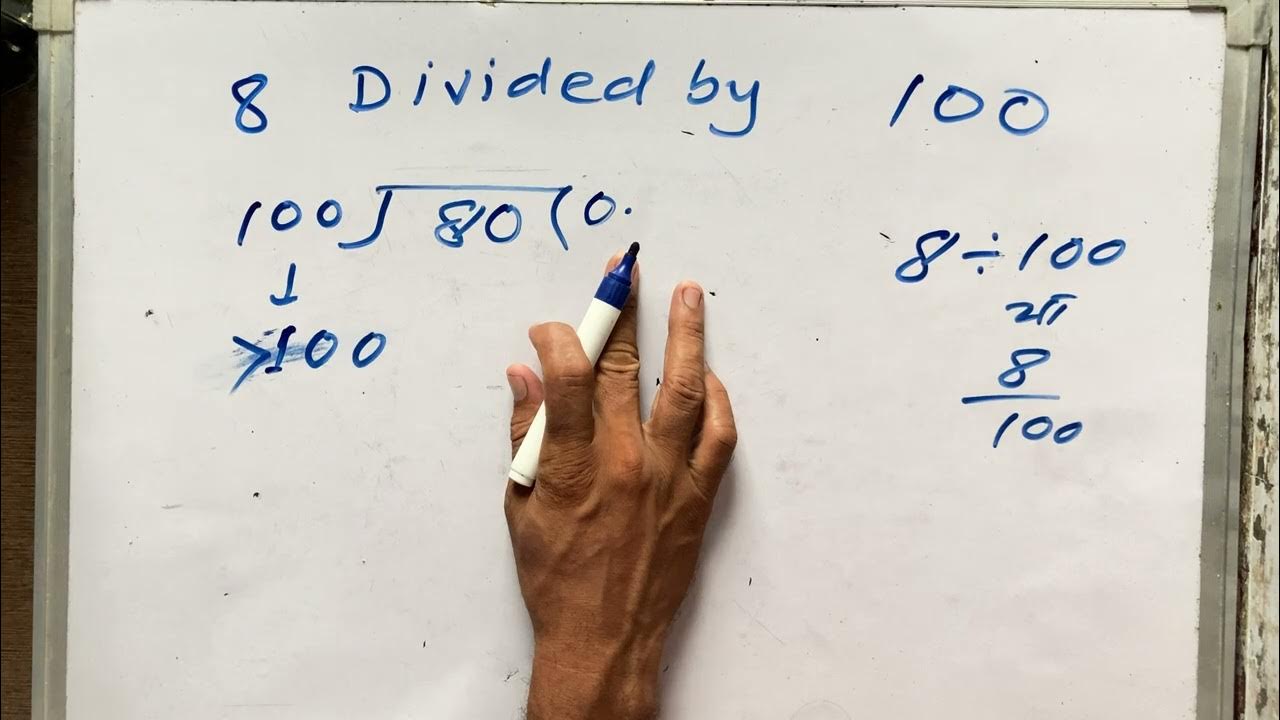 8 Divided by 100
100) 80 (0.
1
>100
8÷100
या
8
100